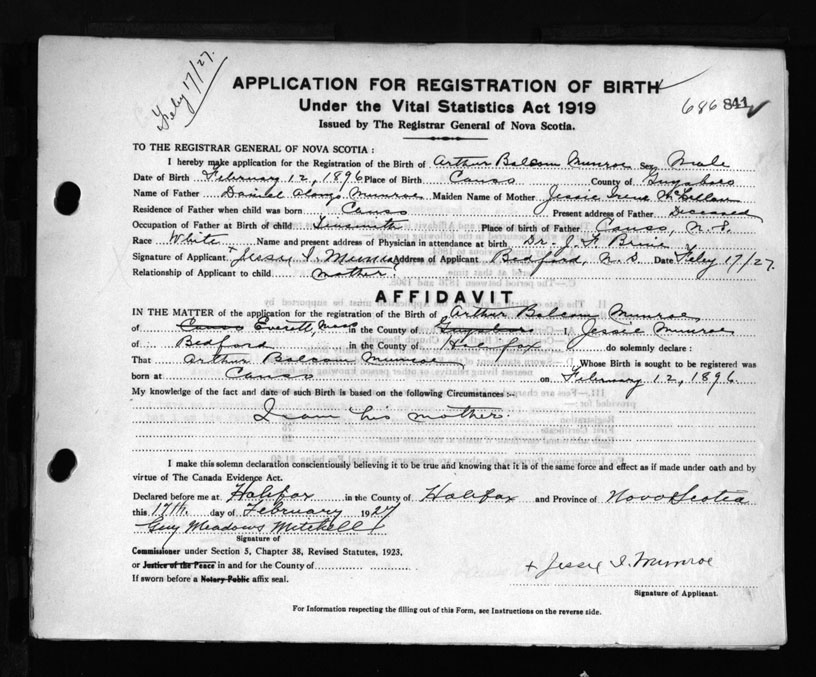 Feby 17/27.
APPLICATION FOR REGISTRATION OF BIRTH
Under the Vital Statistics Act 1919
686 841
Issued by The Registrar General of Nova Scotia.
TO THE REGISTRAR GENERAL OF NOVA SCOTIA :
I hereby make application for the Registration of the Birth of Arthur Balcom Munroe Sex Male
Date of Birth February 12, 1896 Place of Birth Canso County of Guysboro
Name of Father Daniel Alonzo Munroe Maiden Name of Mother Jessie Irene McLellan
Residence of Father when child was born Canso Present address of Father Deceased
Occupation of Father at Birth of child Tinsmith Place of birth of Father Canso, N. S.
Race White Name and present address of Physician in attendance at birth Dr. J. F.
Signature of Applicant + Jessie I. Munroe Address of Applicant Bedford, N. S. Date Feby 17/27.
Relationship of Applicant to child mother.
AFFIDAVIT
IN THE MATTER of the application for the registration of the Birth of Arthur Balcom Munroe
of Canso Everett, Mass in the County of Guysboro I Jessie Munroe
of Bedford in the County of Halifax do solemnly declare :
That Arthur Balcom Munroe Whose Birth is sought to be registered was
born at Canso on February 12, 1896
My knowledge of the fact and date of such Birth is based on the following Circumstances :-
I am his mother.
I make this solemn declaration conscientiously believing it to be true and knowing that it is of the same force and effect as if made under oath and by
virtue of The Canada Evidence Act.
Declared before me at Halifax in the County of Halifax and Province of Nova Scotia
this 17th. day of February 1927
Guy Meadows Mitchell
Signature of
Commissioner under Section 5, Chapter 38, Revised Statutes, 1923.
or Justice of the Peace in and for the County of
+ Jessie I. Munroe
If sworn before a Notary Public affix seal.
Signature of Applicant.
For Information respecting the filling out of this Form, see Instructions on the reverse side.